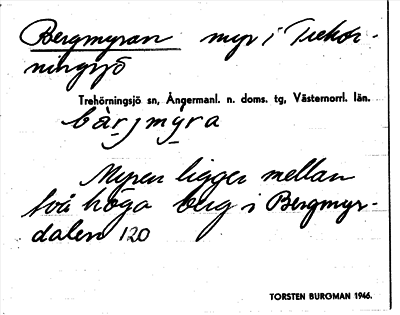 Bergmyran myr i Trehör-
ningsjö
Trehörningsjö sn, Ångermanl. n. doms. tg, Västernorrl. län.
bàrjmýra
Myren ligger mellan
två höga berg i Bergmyr-
dalen 120
TORSTEN BURGMAN 1946.